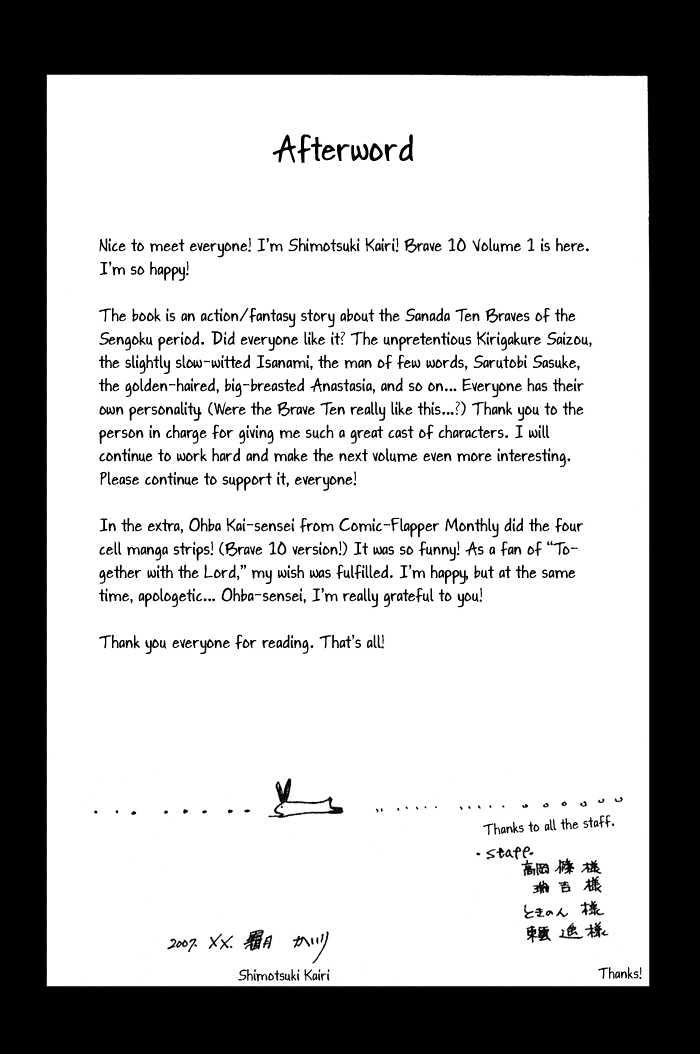 Afterword
Nice to meet everyone! I'm Shimotsuki Kairi! Brave 10 Volume 1 is here.
I'm so happy!
The book is an action/fantasy story about the Sanada Ten Braves of the
Sengoku period. Did everyone like it? The unpretentious Kirigakure Saizou,
the slightly slow-witted Isanami, the man of few words, Sarutobi Sasuke,
the golden-haired, big-breasted Anastasia, and so on... Everyone has their
own personality. (Were the Brave Ten really like this...?) Thank you to the
person in charge for giving me such a great cast of characters. I will
continue to work hard and make the next volume even more interesting.
Please continue to support it, everyone!
In the extra, Ohba Kai-sensei from Comic-Flapper Monthly did the four
cell manga strips! (Brave 10 version!) It was so funny! As a fan of "To-
gether with the Lord," my wish was fulfilled. I'm happy, but at the same
time, apologetic... Ohba-sensei, I'm really grateful to you!
Thank you everyone for reading. That's all!
Thanks to all the staff.
・staff・
高岡 條 様
吉 様
ときのん 様
様
2007. XX. 霜月 かいり
Shimotsuki Kairi
Thanks!